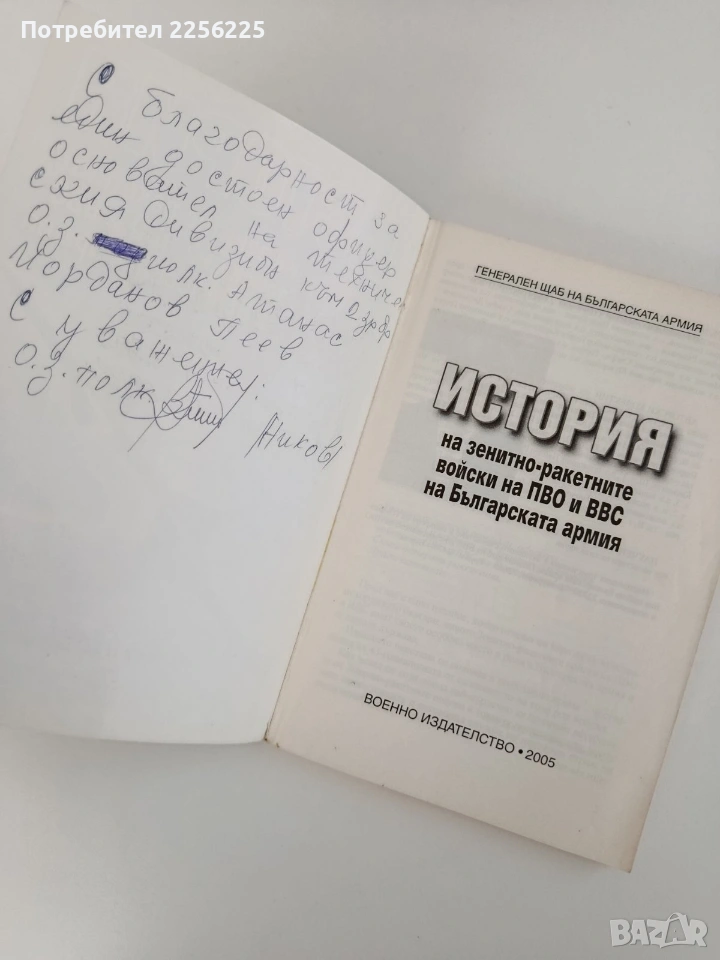 Потребител 2256225
С благодарност за
един достоен офицер
основател на техниче
ския дивизион към 2 зрбр
о.з. полк. Атанас
Йорданов Пеев
С уважение:
о.з. полк.
/Ников/
ГЕНЕРАЛЕН ЩАБ НА БЪЛГАРСКАТА АРМИЯ
ИСТОРИЯ
на зенитно-ракетните
войски на ПВО и ВВС
на Българската армия
ВОЕННО ИЗДАТЕЛСТВО • 2005
BAZAR